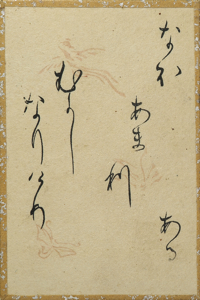 なほ
あま利
ある
むかし
なりけり